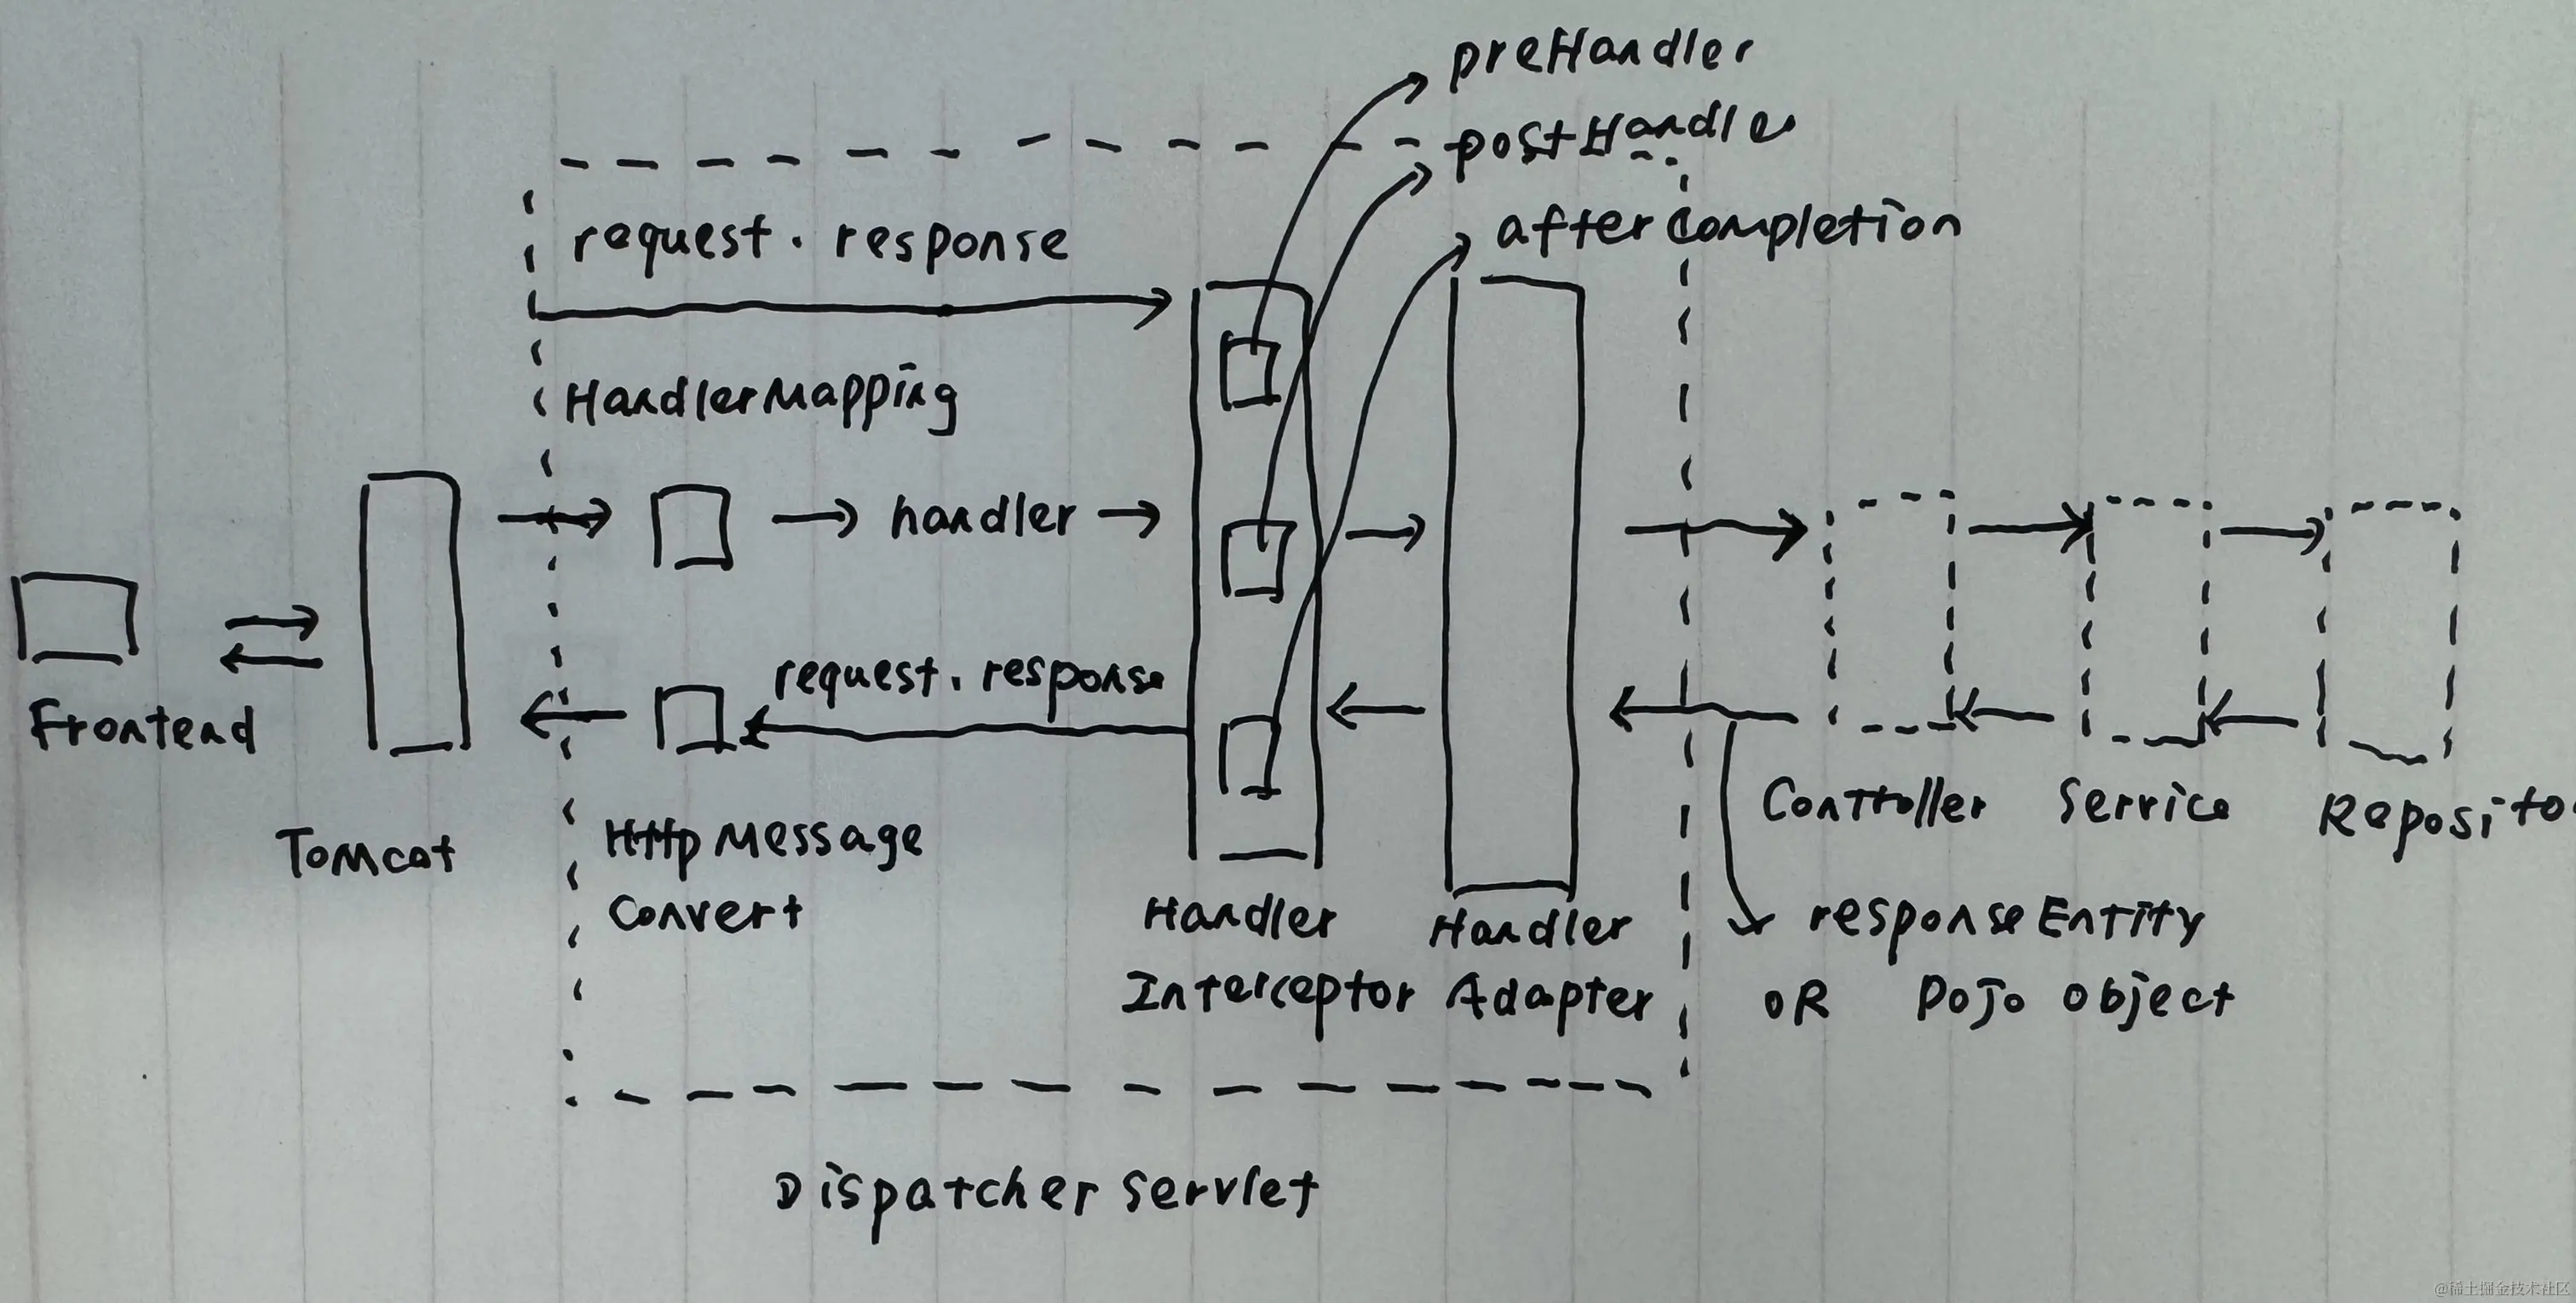 preHandler
postHandle
afterCompletion
request. response
HandlerMapping
handler
request. response
Frontend
Tomcat
Http Message
Convert
Handler
Interceptor
Handler
Adapter
Controller
Service
Reposito
responseEntity
OR POJO Object
Dispatcher Servlet
@稀土掘金技术社区